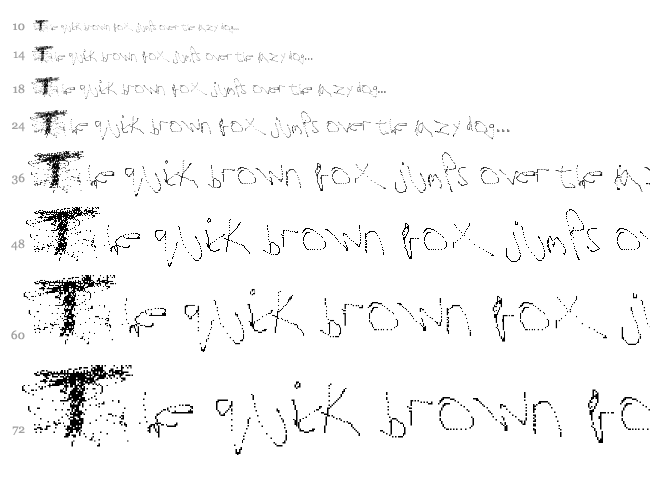 10 The quick brown fox jumps over the lazy dog...
14 The quick brown fox jumps over the lazy dog...
18 The quick brown fox jumps over the lazy dog...
24 The quick brown fox jumps over the lazy dog...
36 The quick brown fox jumps over the laz
48 The quick brown fox jumps ov
60 The quick brown fox j
72 The quick brown fo